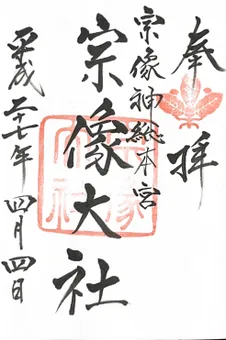 奉拝
宗像神総本宮
宗像大社
平成二十七年四月四日